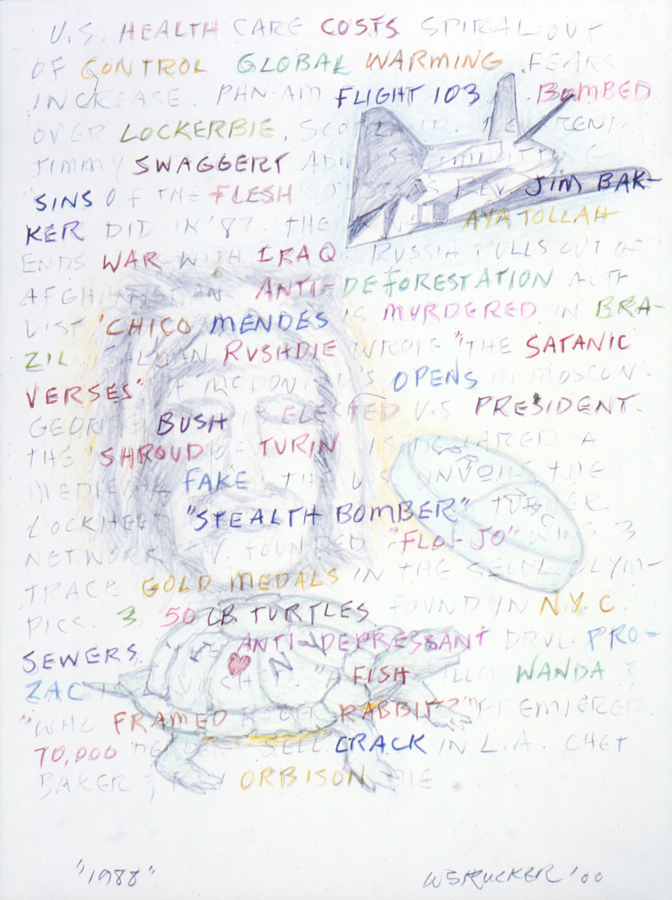 U.S. HEALTH CARE COSTS SPIRAL OUT
OF CONTROL GLOBAL WARMING FEARS
INCREASE. PAN AM FLIGHT 103 BOMBED
OVER LOCKERBIE, SCOTLAND. THE REND
JIMMY SWAGGERT
"SINS OF THE FLESH REV. JIM BAK-
KER DID IN '87. THE AYATOLLAH
ENDS WAR WITH IRAQ. RUSSIA PULLS OUT OF
AFGHANISTAN ANTI-DEFORESTATION ACTI
VIST 'CHICO MENDES IS MURDERED IN BRA-
ZIL SALMAN RUSHDIE WROTE "THE SATANIC
VERSES" A McDONALD'S OPENS IN MOSCOW.
GEORGE BUSH IS ELECTED U.S. PRESIDENT.
THE "SHROUD OF TURIN IS DECLARED A
FAKE THE U.S. UNVEILS THE
LOCKHEED "STEALTH BOMBER" TURNER
NETWORK T.V. FOUNDED "FLO-JO" WINS 3
TRACK GOLD MEDALS IN THE SEOUL OLYM-
PICS. 3 50 LB. TURTLES FOUND IN N.Y.C.
SEWERS. ANTI-DEPRESSANT DRUG PRO-
ZAC "A FISH CALLED WANDA &
"WHO FRAMED ROGER RABBIT?" PREMIERED.
70,000 SELL CRACK IN L.A. CHET
BAKER & ROY ORBISON DIE
"1988"
W STRUCKER '00